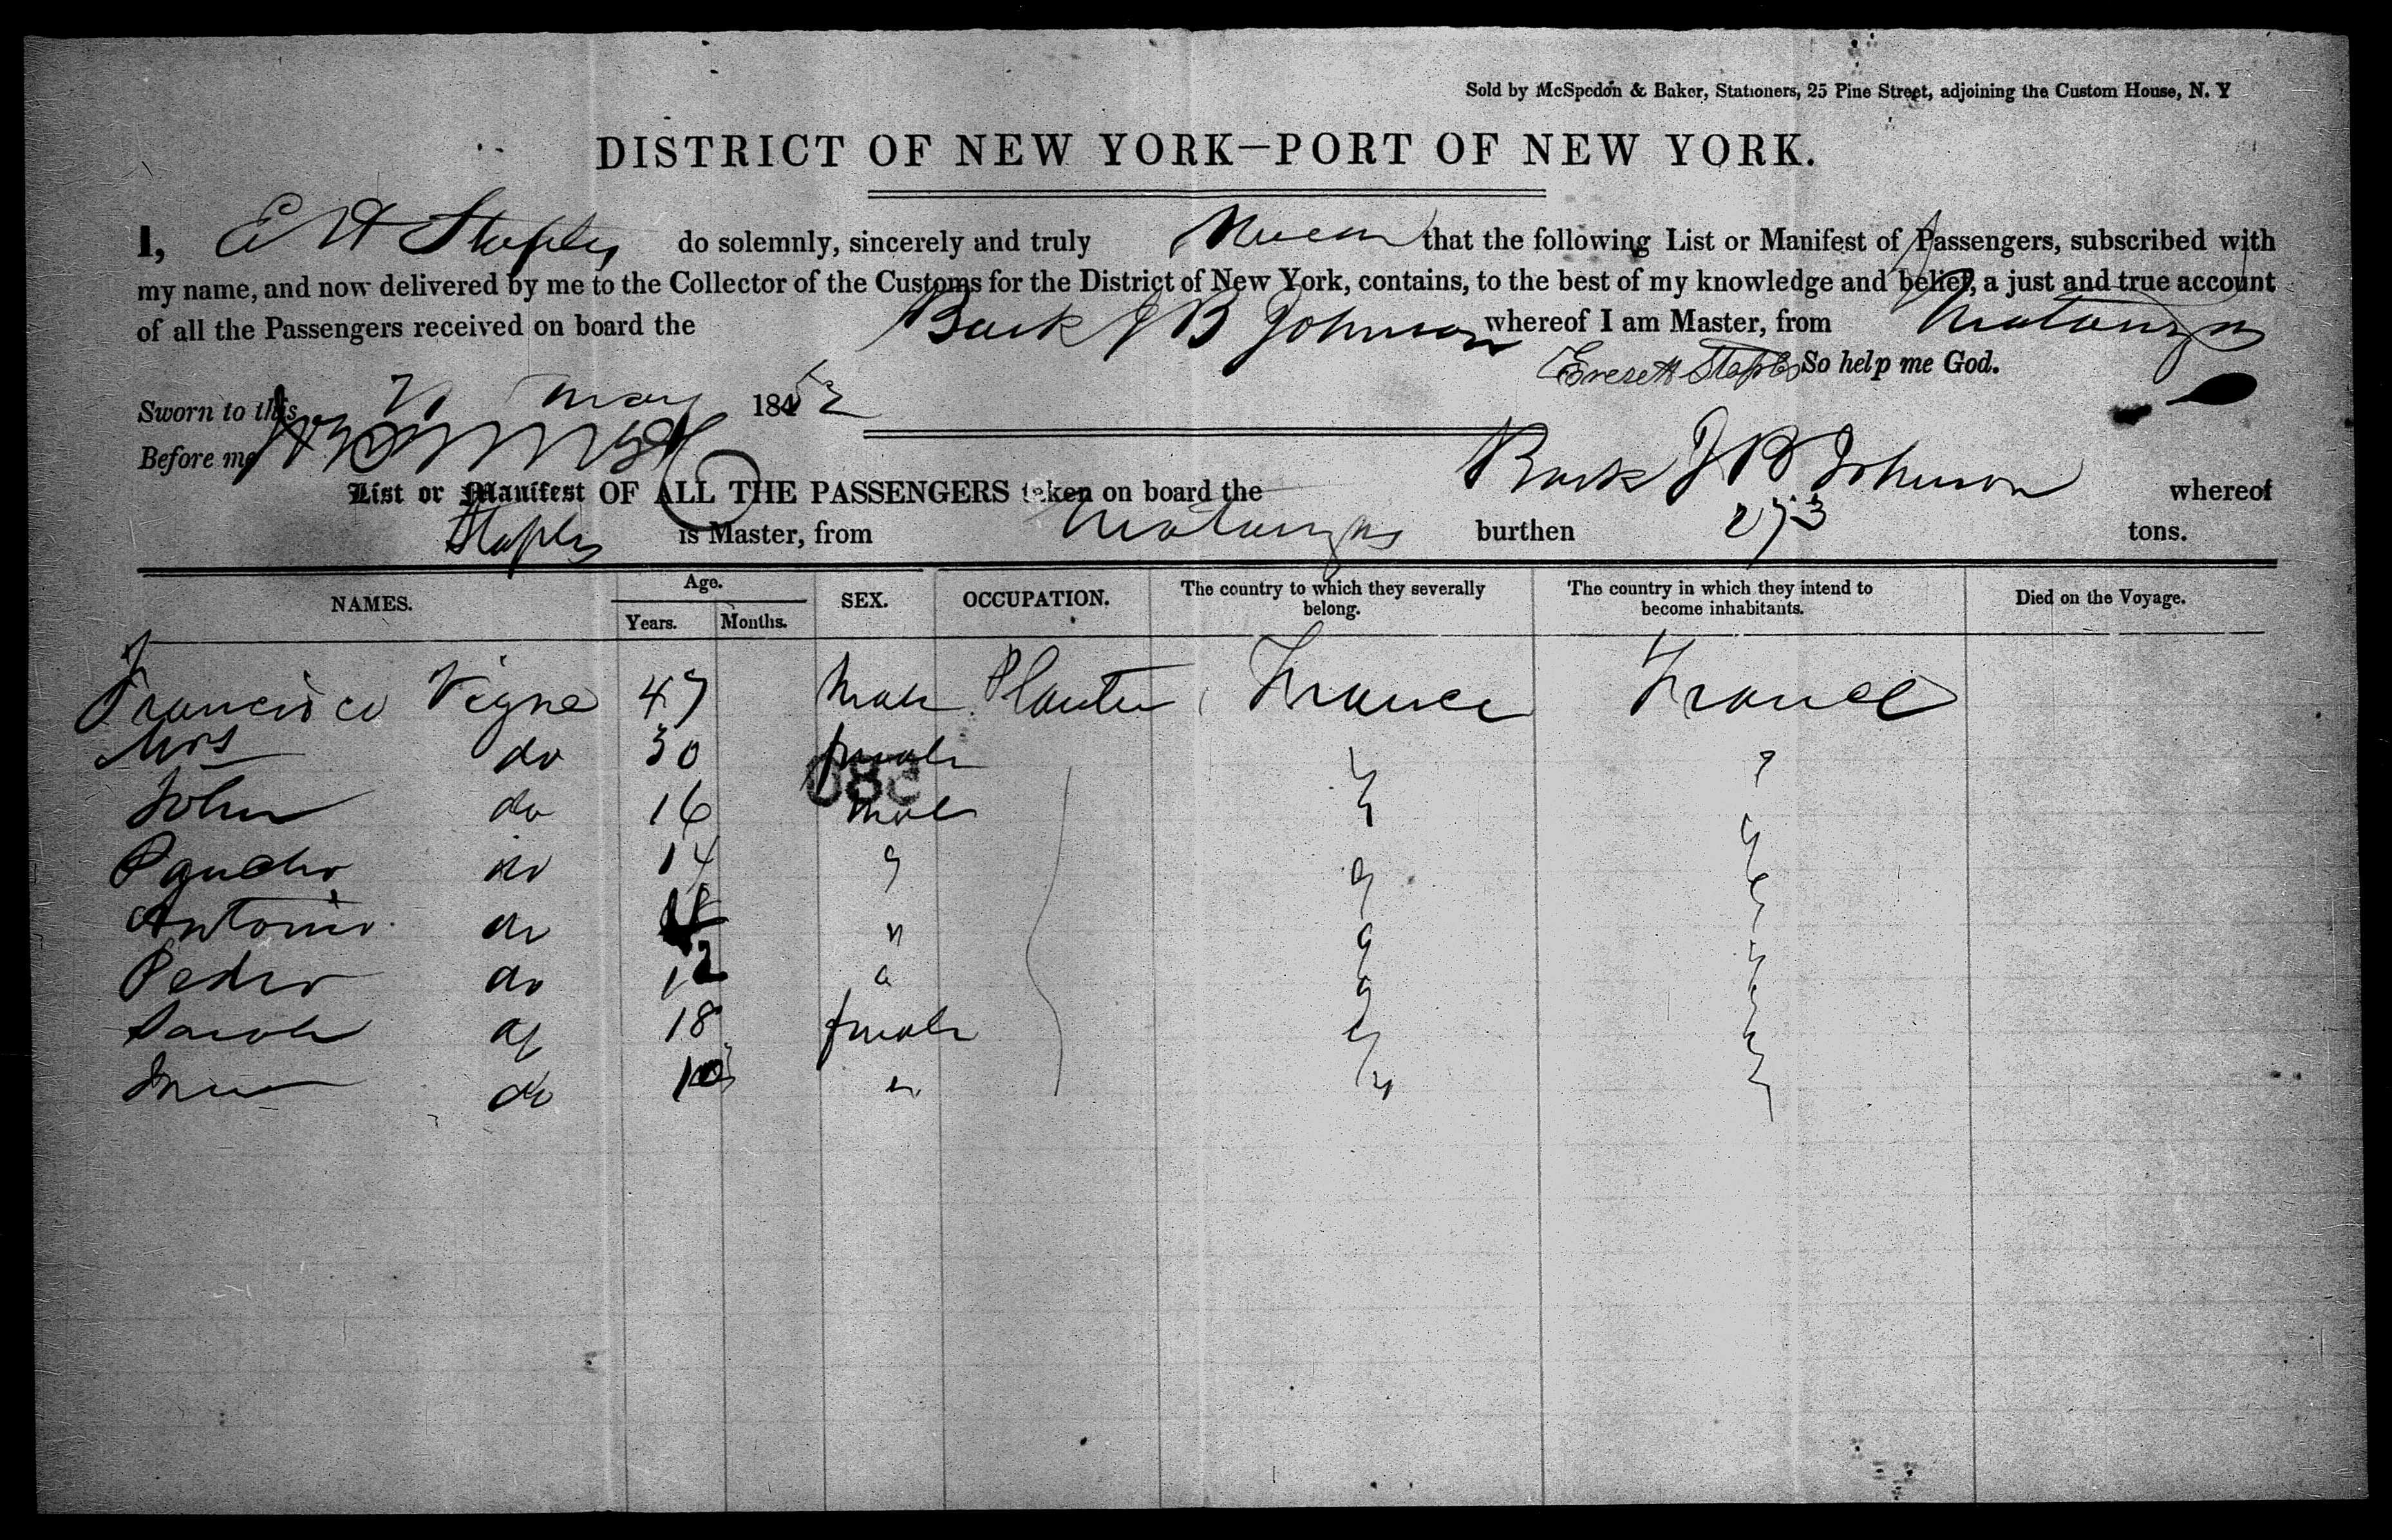 Sold by McSpedon & Baker, Stationers, 25 Pine Street, adjoining the Custom House, N. Y
DISTRICT OF NEW YORK—PORT OF NEW YORK.
I, E H Staples do solemnly, sincerely and truly swear that the following List or Manifest of Passengers, subscribed with
my name, and now delivered by me to the Collector of the Customs for the District of New York, contains, to the best of my knowledge and belief, a just and true account
of all the Passengers received on board the Bark J B Johnson whereof I am Master, from Matanzas
Everett Staples So help me God.
Sworn to this May 1852
Before me
List or Manifest OF ALL THE PASSENGERS taken on board the Bark J B Johnson whereof
Staples is Master, from Matanzas burthen 273 tons.
NAMES. Age. Years. Months. SEX. OCCUPATION. The country to which they severally belong. The country in which they intend to become inhabitants. Died on the Voyage.
Francisco Vigne 47 Male Planter France France
Mrs do 30 female "
John do 16 male "
Pancho do 14 " "
Antonio do " "
Pedro do 12 " "
Sarah do 18 female "
do 10 " "
080